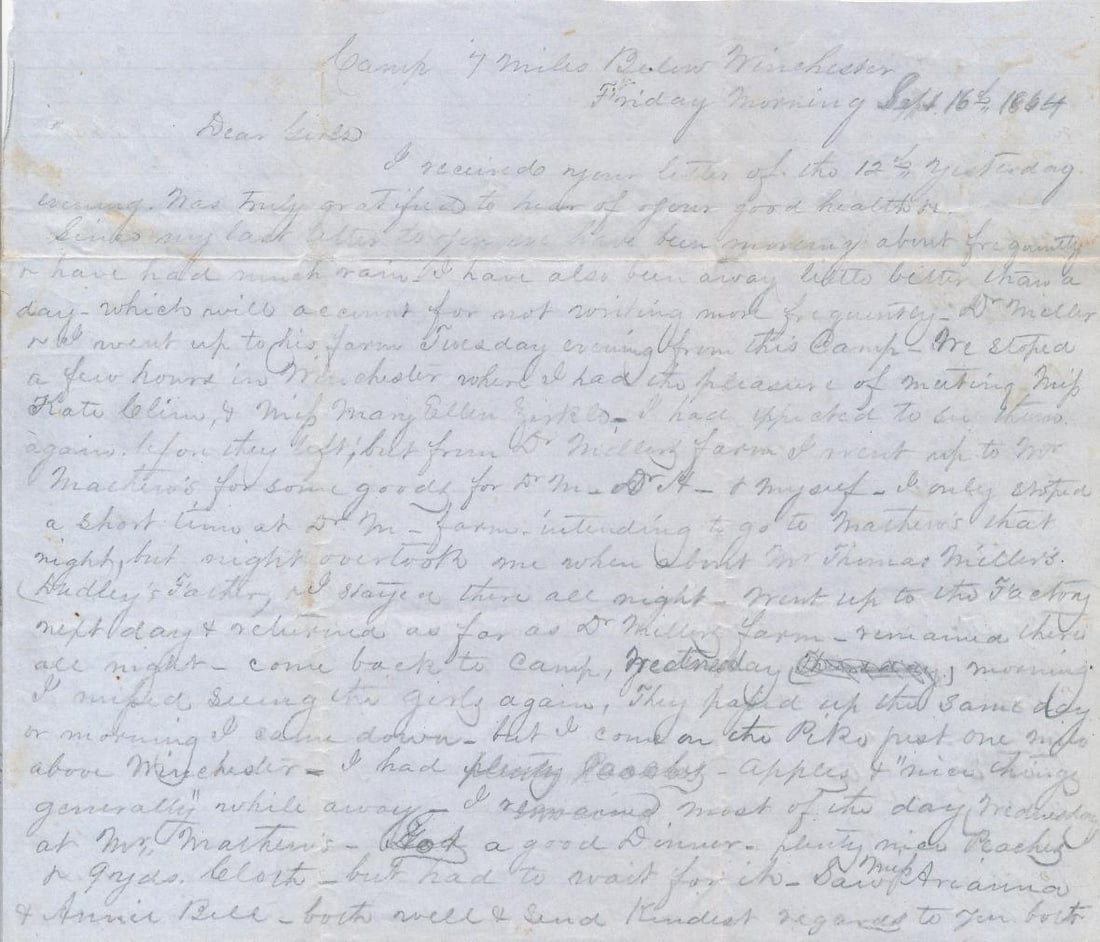 Camp 7 Miles Below Winchester
Friday Morning Sept. 16th, 1864
Dear Girls
I received your letter of the 12th yesterday
evening. Was truly gratified to hear of your good health &c.
Since my last letter to you we have been moving about frequently
& have had much rain. I have also been away little better than a
day - which will account for not writing more frequently - Dr Miller
& I went up to his farm Tuesday evening from this Camp - We stoped
a few hours in Winchester where I had the pleasure of meeting Miss
Kate Cline, & Miss Mary Ellen Zirkle - I had expected to see them
again before they left, but from Dr Millers farm I went up to Mr
Mathew's for some goods for Dr M - Dr H - & myself - I only stoped
a short time at Dr M - farm - intending to go to Mathew's that
night, but night overtook me when about Mr Thomas Miller's.
(Dudley's Father, & I stayed there all night - Went up to the Factory
next day & returned as far as Dr Millers farm - remained there
all night - come back to Camp, Wednesday (Thursday,) morning
I missed seeing the girls again, They passed up the same day
or morning I came down - but I come on the Pike just one mile
above Winchester - I had plenty Peaches - apples & "nice things
generally" while away - I remained most of the day (Wednesday
at Mr. Mathew's - Got a good Dinner - plenty nice Peaches
& 9 yds. Cloth - but had to wait for it - Saw Miss Arianna
& Annie Bell - both well & send Kindest regards to you both